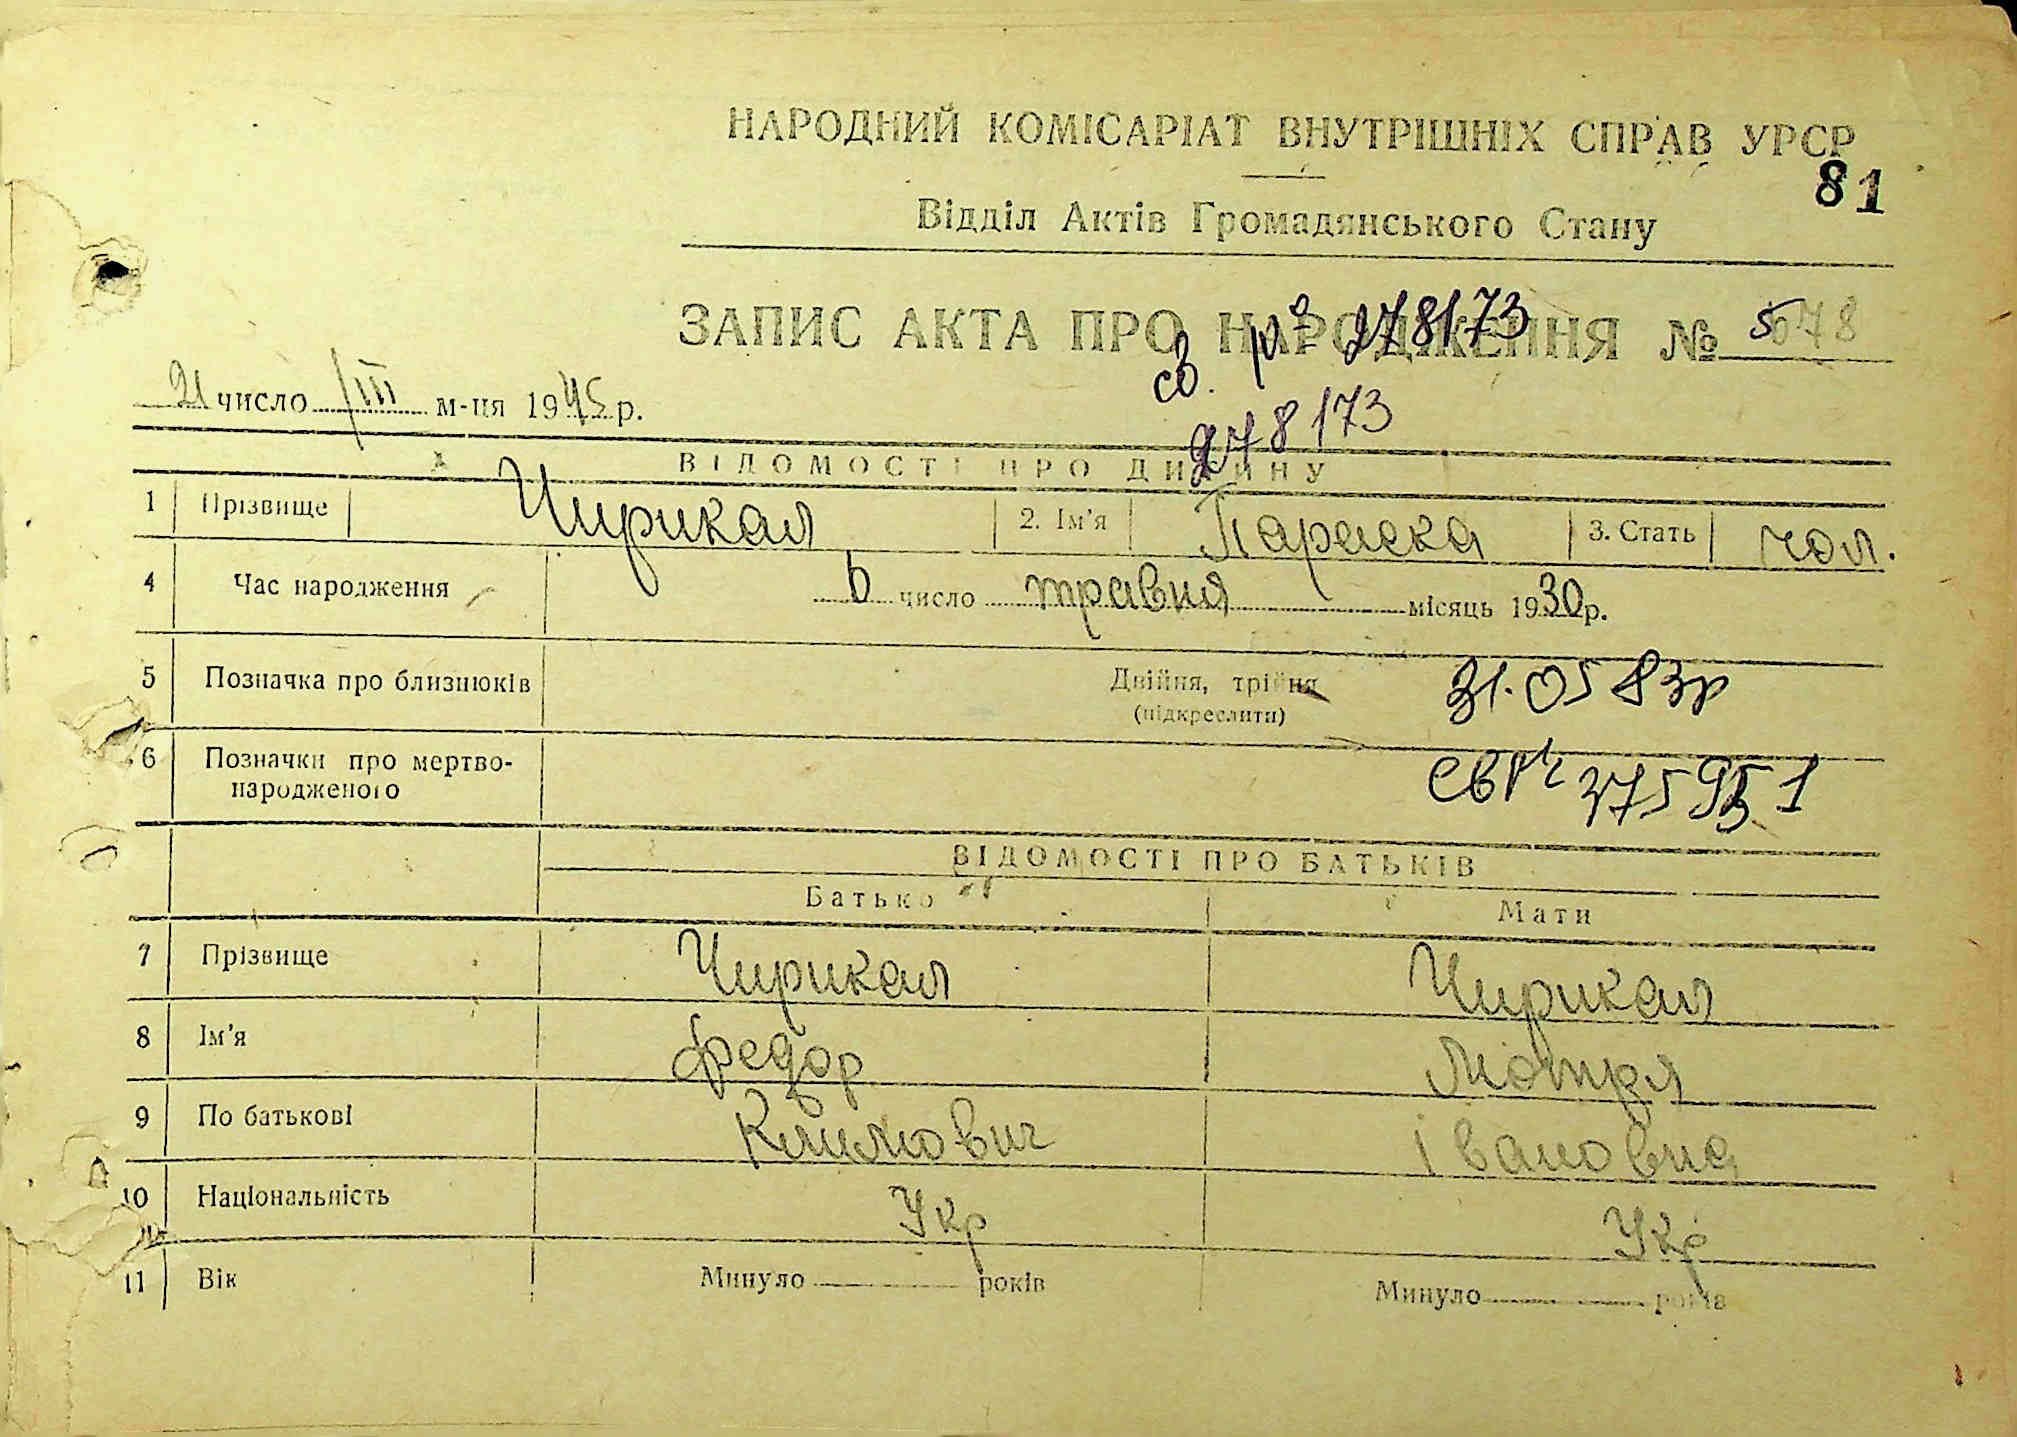 НАРОДНИЙ КОМІСАРІАТ ВНУТРІШНІХ СПРАВ УРСР
81
Відділ Актів Громадянського Стану
ЗАПИС АКТА ПРО НАРОДЖЕННЯ №
св. № 278173
21 число III м-ця 1945 р.
278173
ВІДОМОСТІ ПРО ДИТИНУ
1 Прізвище Чирикал 2. Ім'я Параска 3. Стать чол.
4 Час народження 6 число травня місяць 1930 р.
5 Позначка про близнюків Двійня, трійня 31.05 83р
(підкреслити)
6 Позначки про мертво-
народженого
ВІДОМОСТІ ПРО БАТЬКІВ
Батько Мати
7 Прізвище Чирикал Чирикал
8 Ім'я Федор Мотря
9 По батькові Климович Івановна
10 Національність Укр Укр
11 Вік Минуло років Минуло років